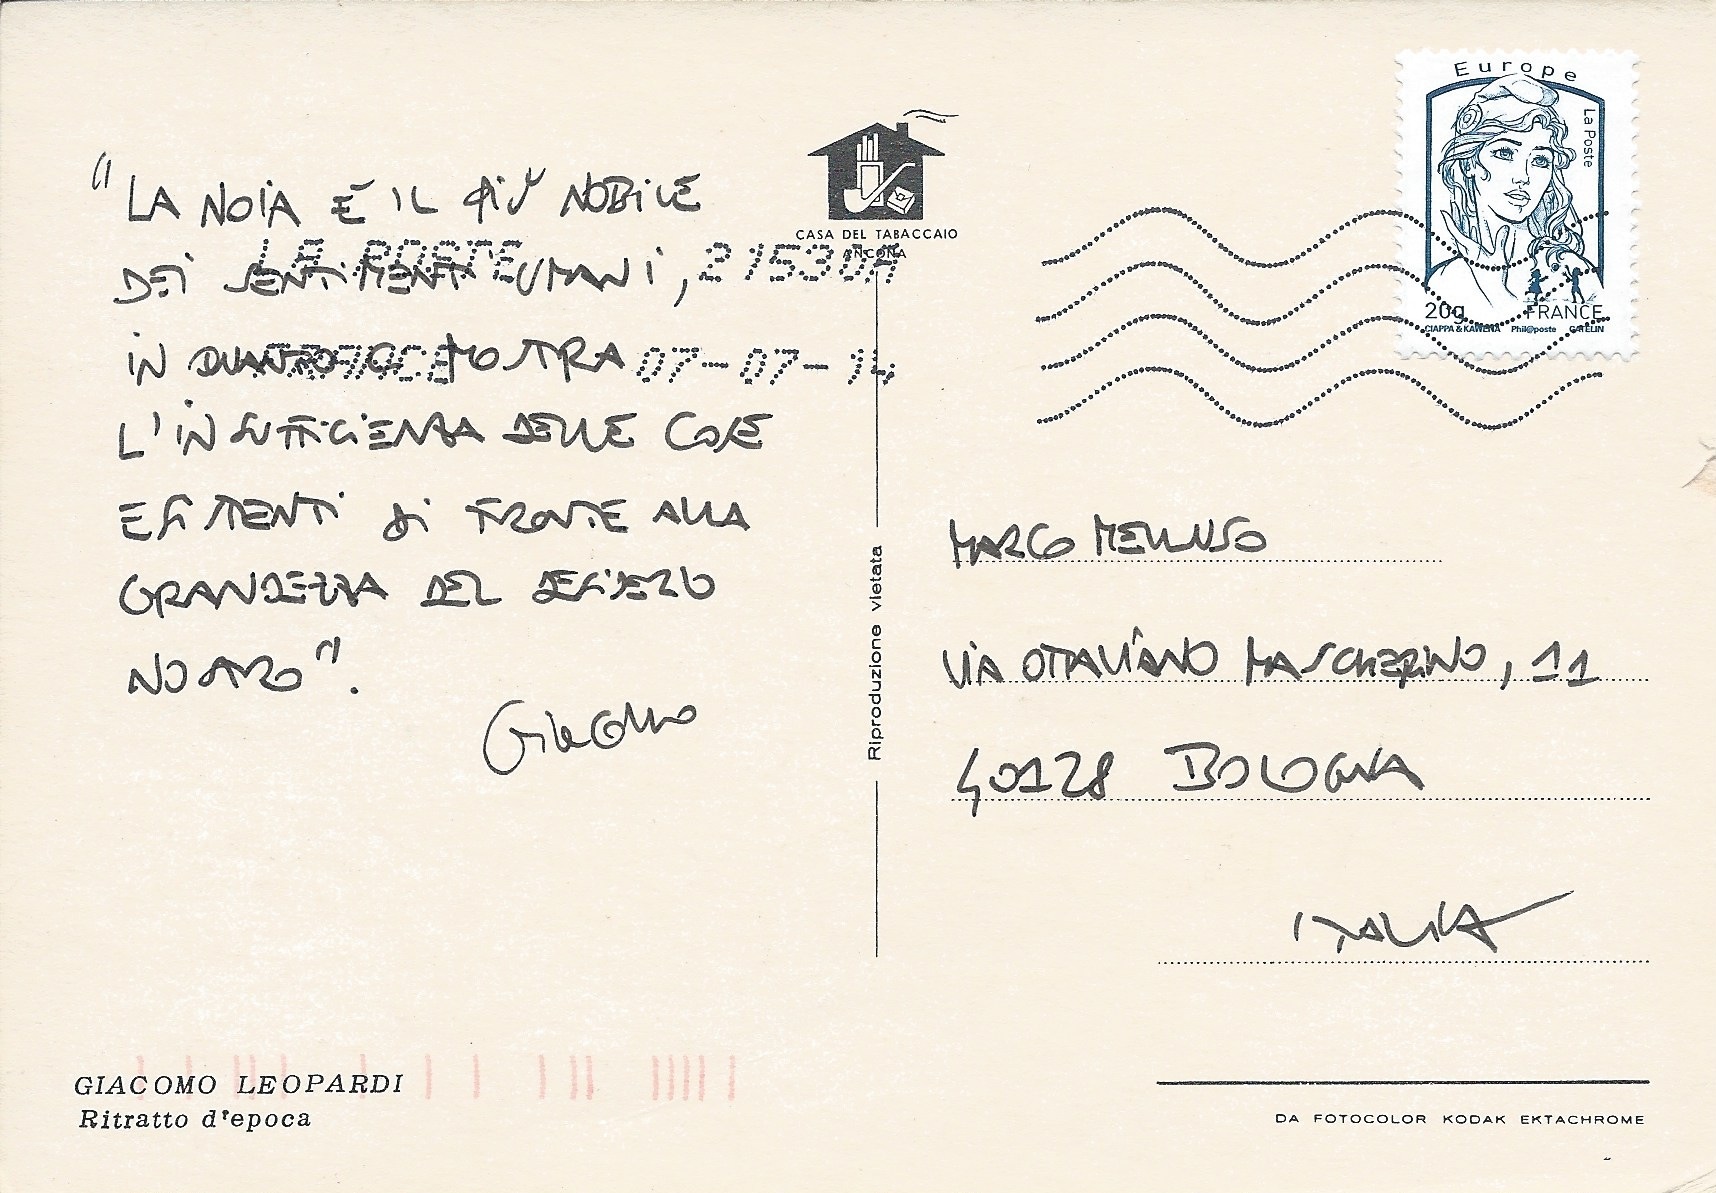 "LA NOIA È IL PIÙ NOBILE
DEI SENTIMENTI UMANI,
IN QUANTO CI MOSTRA
L'INSUFFICIENZA DELLE COSE
ESISTENTI DI FRONTE ALLA
GRANDEZZA DEL DESIDERIO
NOSTRO".
Giacomo
LA POSTE 21530A
FRANCE 07-07-14
CASA DEL TABACCAIO
ANCONA
Riproduzione vietata
Europe
La Poste
20g FRANCE
CIAPPA & KAWENA Phil@poste CATELIN
MARCO MELLUSO
VIA OTTAVIANO MASCHERINO, 11
40128 BOLOGNA
ITALIA
GIACOMO LEOPARDI
Ritratto d'epoca
DA FOTOCOLOR KODAK EKTACHROME